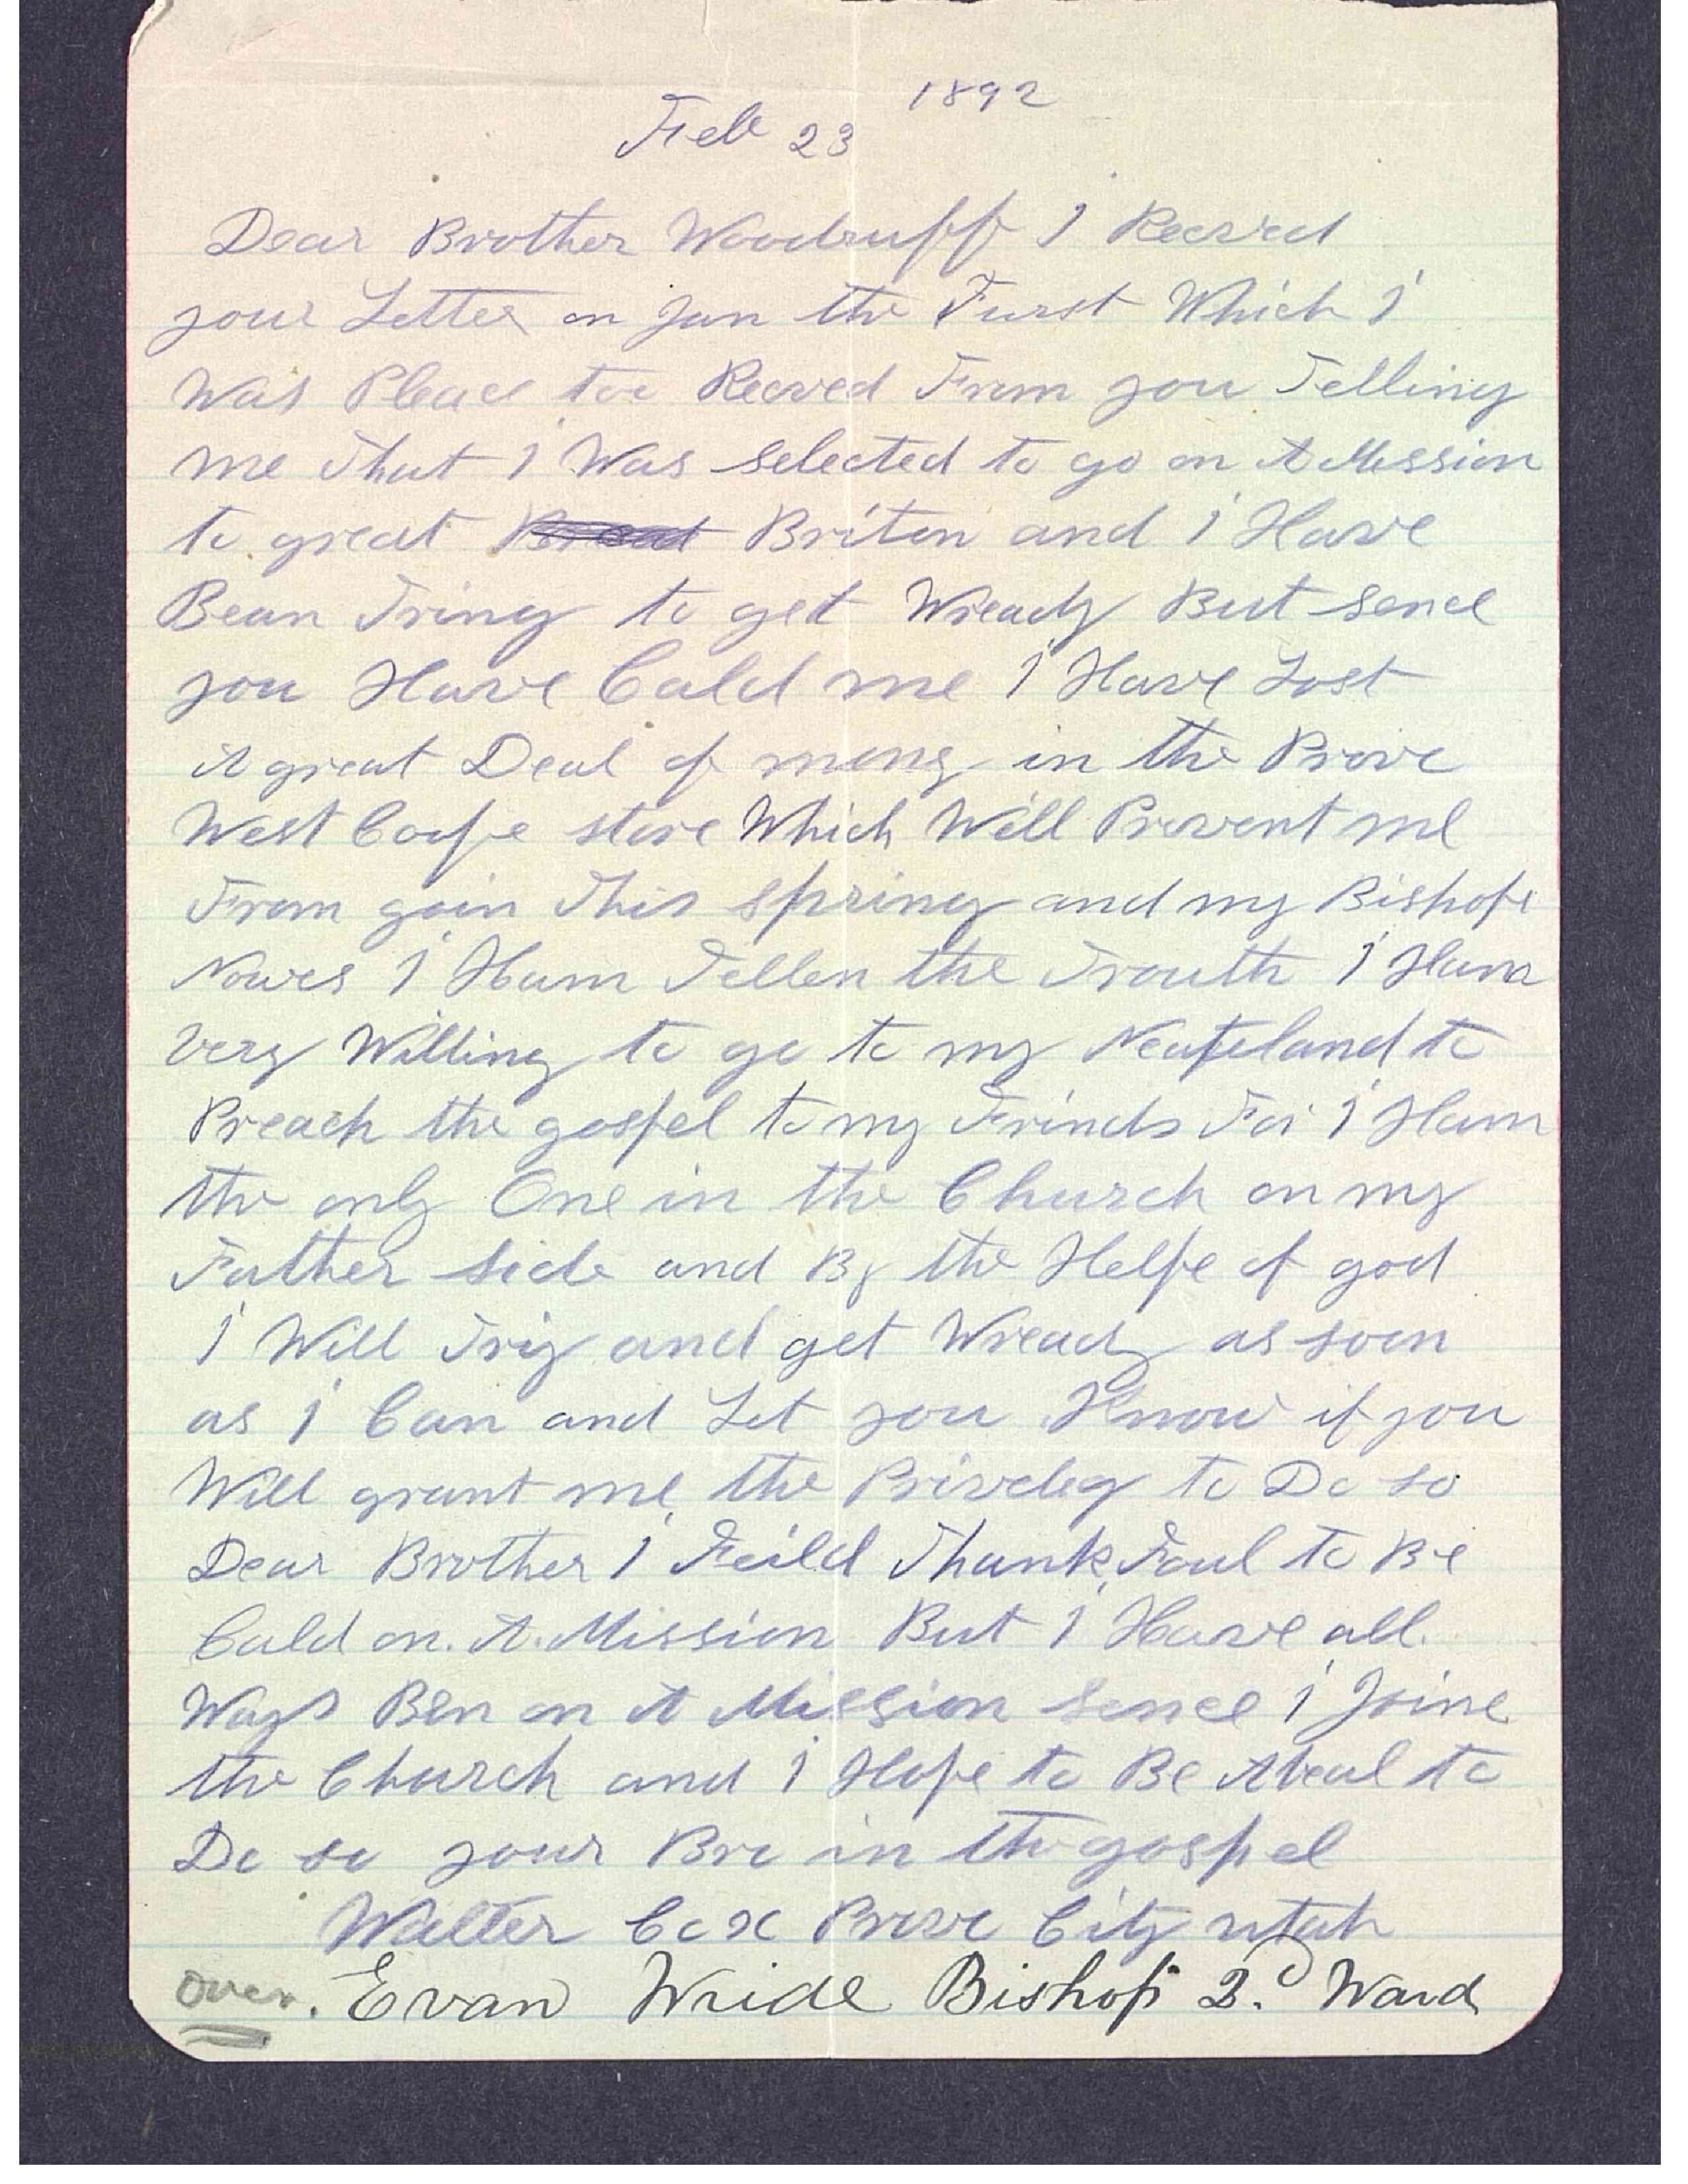 1892
Feb 23
Dear Brother Woodruff I Recved
your Letter on Jan the Furst Which I
Was Pleace toe Recved From you Telling
me That I Was selected to go on A Mession
to great Briton and I Have
Bean Tring to get Wready But sence
you Have Cald me I Have Lost
A great Deal of mony in the Provo
West Coope store Which Will Prevent me
From goin This spring and my Bishope
Nowes I Ham Tellen the Trouth I Ham
very Willing to go to my Neafeland to
Preach the gospel to my Frinds For I Ham
the only One in the Church on my
Father side and By the Helpe of god
I Will Triy and get Wready as soon
as I Can and Let you Know if you
Will grant me the Priveleg to Do so
Dear Brother I Feild Thank Foul to Be
Cald on. A. Mission But I Have all.
Ways Ben on A Mission sence I Joine
the Church and I Hope to Be Abeal to
Do so your Bro in the gospel
Walter Cox Provo City utah
Over. Evan Wride Bishop 2.d Ward